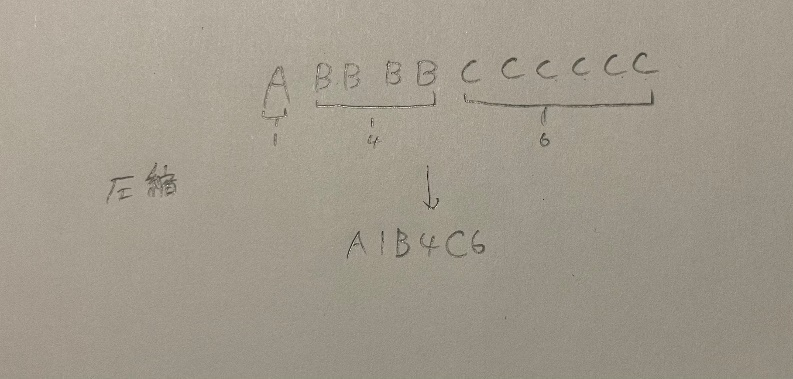 A BB BB CCCCCC
1 4 6
圧縮
A1B4C6